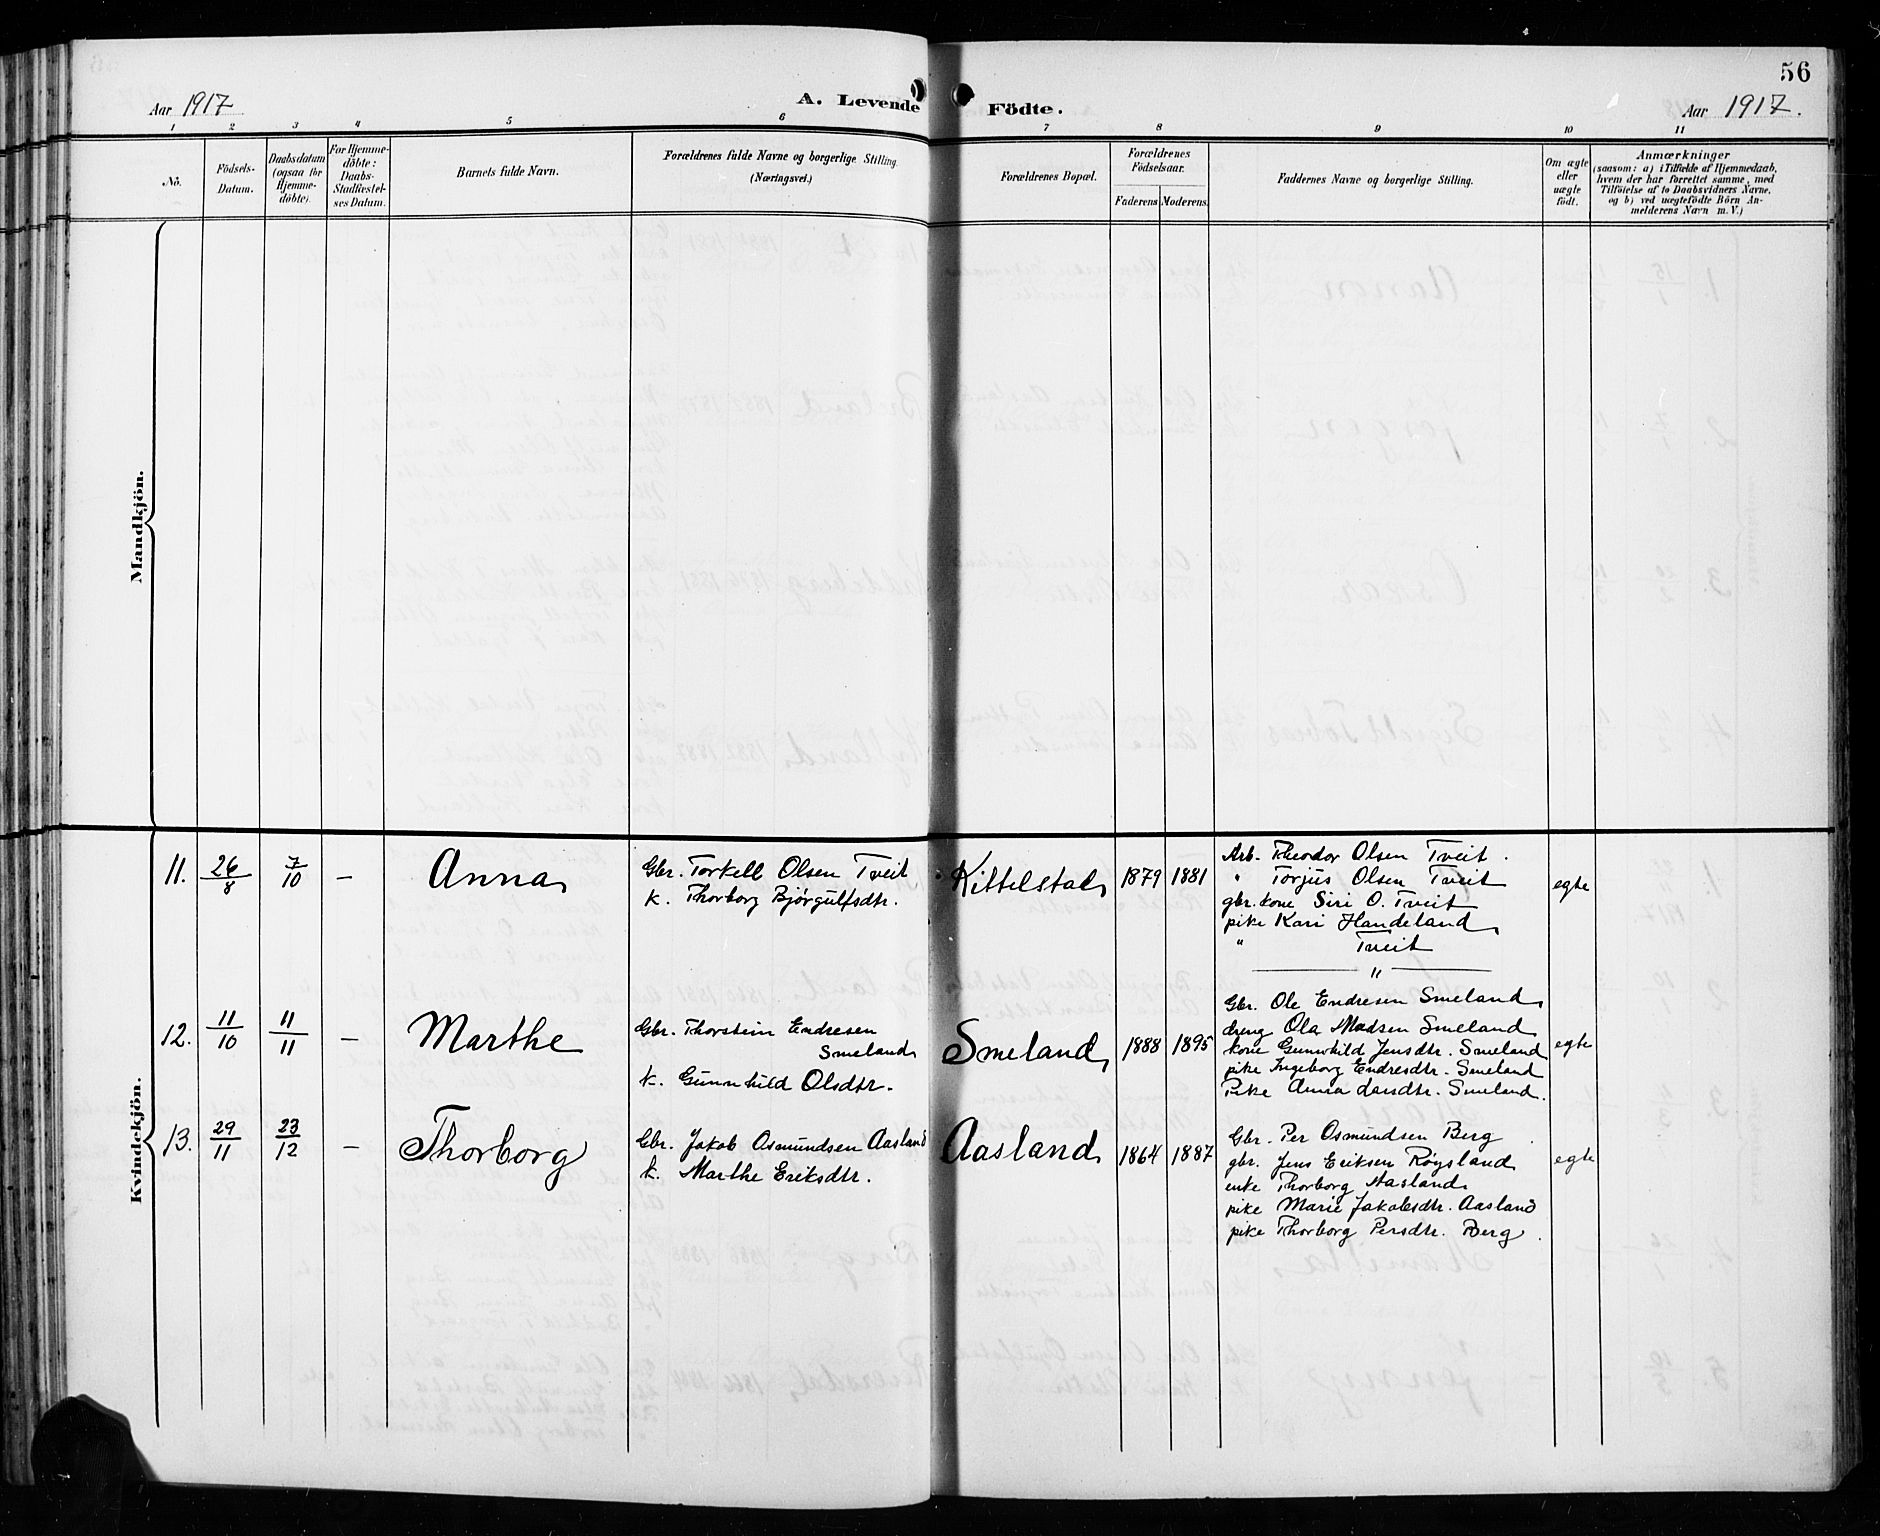 56
Aar 1917
A. Levende Födte.
Aar 1917.
1 2 3 4 5 6 7 8 9 10 11
No.
Födsels-
Datum.
Daabsdatum
(ogsaa for
Hjemme-
döbte).
For Hjemme-
döbte:
Daabs-
Stadfæstel-
ses Datum.
Barnets fulde Navn.
Forældrenes fulde Navne og borgerlige Stilling.
(Næringsvei.)
Forældrenes Bopæl.
Forældrenes
Födselsaar.
Faderens Moderens.
Faddernes Navne og borgerlige Stilling.
Om ægte
eller
uægte
födt.
Anmærkninger
(saasom: a) i Tilfælde af Hjemmedaab,
hvem der har forrettet samme, med
Tilföielse af to Daabsvidners Navne,
og b) ved uægtefödte Börn An-
melderens Navn m. V.)
Mandkjön.
Kvindekjön.
11. 26/8 7/10 – Anna
Gbr. Torkell Olsen Tveit
k. Thorborg Bjørgulfsdtr.
Kittelstad 1879 1881
Arb. Theodor Olsen Tveit.
" Torjus Olsen Tveit
gbr. kone Siri O. Tveit
pike Kari Handeland
" Tveit
"
egte
12. 11/10 11/11 – Marthe
Gbr. Thorstein Endresen
Smeland
k. Gunnhild Olsdtr.
Smeland 1888 1895
Gbr. Ole Endresen Smeland
dreng Ola Madsen Smeland
kone Gunnhild Jensdtr. Smeland
pike Ingeborg Endresdtr. Smeland
Pike Anna Smeland.
egte
13. 29/11 23/12 – Thorborg
Gbr. Jakob Osmundsen Aasland
k. Marthe Eriksdtr.
Aasland 1864 1887
Gbr. Per Osmundsen Berg
gbr. Jens Eriksen Røysland
enke Thorborg Aasland
pike Marie Jakobsdtr. Aasland
pike Thorborg Persdtr. Berg.
egte